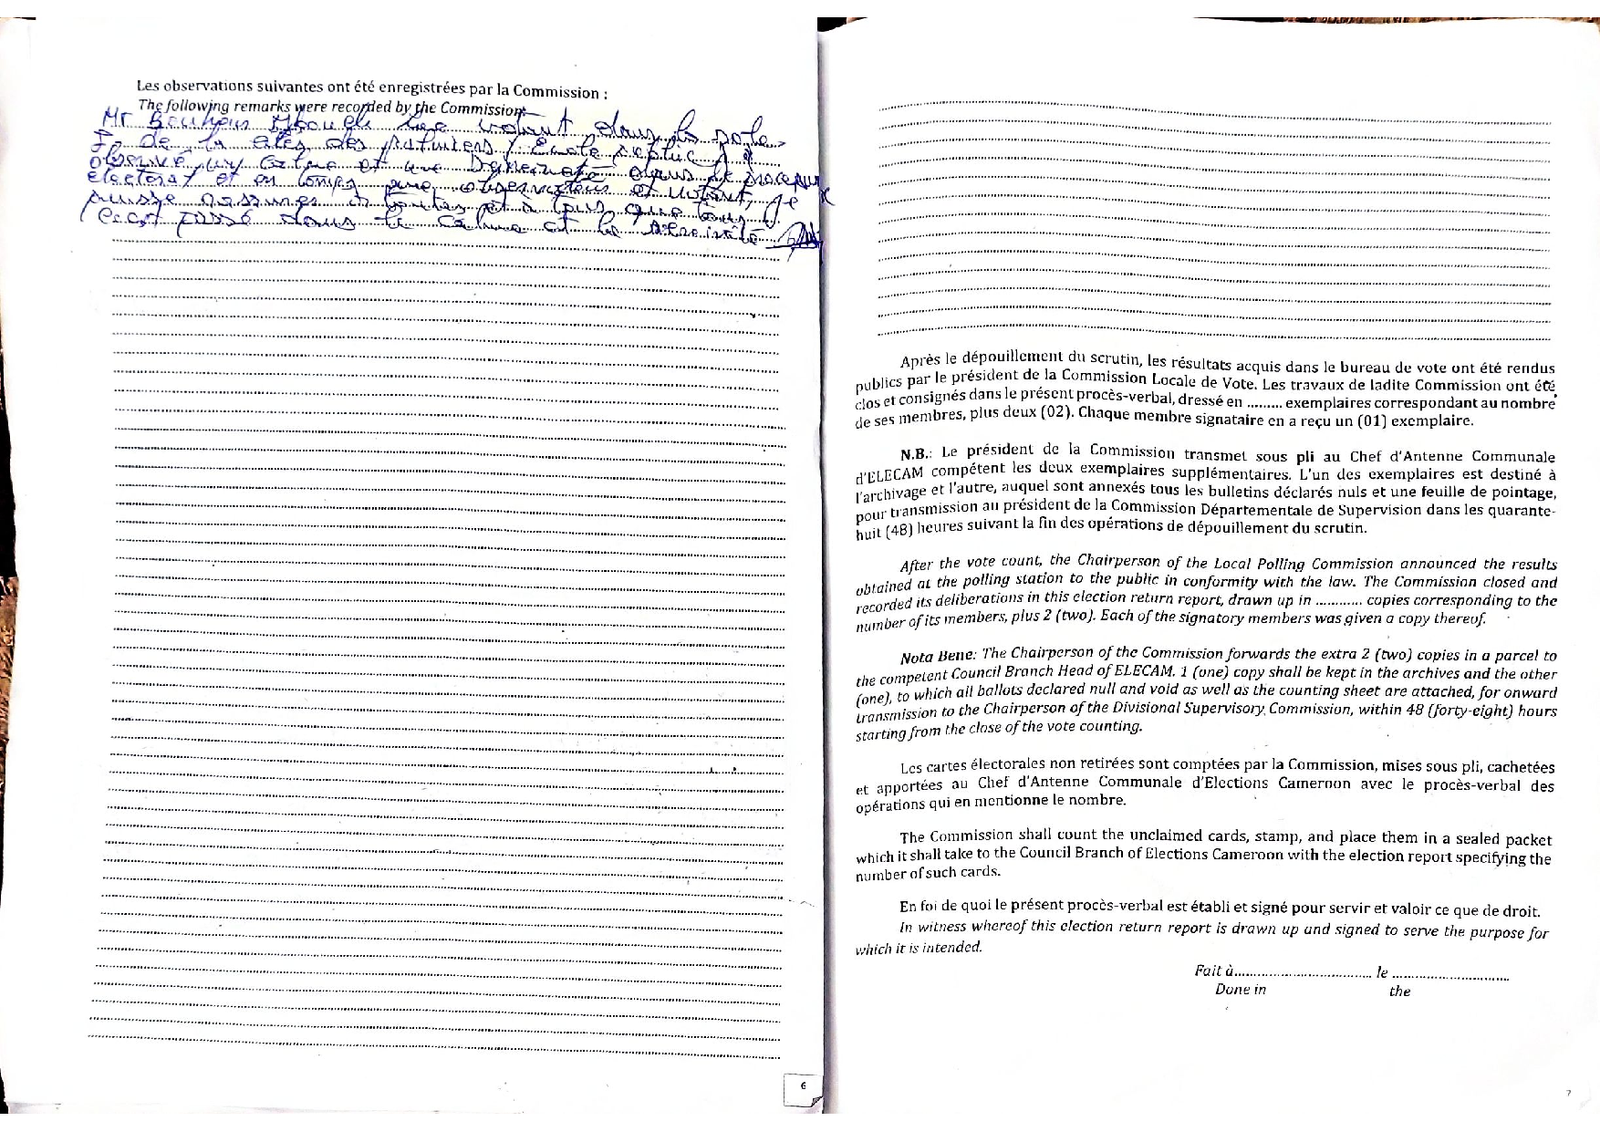 Les observations suivantes ont été enregistrées par la Commission :
The following remarks were recorded by the Commission:
Mr votant dans la salle
F de la cité des palmiers / École
observé un calme et une dans le
électorat et en temps que observateur et votant, je
puisse à toutes et à tous que tous
passé dans le calme et la sérénité
6
Après le dépouillement du scrutin, les résultats acquis dans le bureau de vote ont été rendus
publics par le président de la Commission Locale de Vote. Les travaux de ladite Commission ont été
clos et consignés dans le présent procès-verbal, dressé en ......... exemplaires correspondant au nombre
de ses membres, plus deux (02). Chaque membre signataire en a reçu un (01) exemplaire.
N.B.: Le président de la Commission transmet sous pli au Chef d'Antenne Communale
d'ELECAM compétent les deux exemplaires supplémentaires. L'un des exemplaires est destiné à
l'archivage et l'autre, auquel sont annexés tous les bulletins déclarés nuls et une feuille de pointage,
pour transmission au président de la Commission Départementale de Supervision dans les quarante-
huit (48) heures suivant la fin des opérations de dépouillement du scrutin.
After the vote count, the Chairperson of the Local Polling Commission announced the results
obtained at the polling station to the public in conformity with the law. The Commission closed and
recorded its deliberations in this election return report, drawn up in ............ copies corresponding to the
number of its members, plus 2 (two). Each of the signatory members was given a copy thereof.
Nota Bene: The Chairperson of the Commission forwards the extra 2 (two) copies in a parcel to
the competent Council Branch Head of ELECAM. 1 (one) copy shall be kept in the archives and the other
(one), to which all ballots declared null and void as well as the counting sheet are attached, for onward
transmission to the Chairperson of the Divisional Supervisory Commission, within 48 (forty-eight) hours
starting from the close of the vote counting.
Les cartes électorales non retirées sont comptées par la Commission, mises sous pli, cachetées
et apportées au Chef d'Antenne Communale d'Elections Cameroon avec le procès-verbal des
opérations qui en mentionne le nombre.
The Commission shall count the unclaimed cards, stamp, and place them in a sealed packet
which it shall take to the Council Branch of Elections Cameroon with the election report specifying the
number of such cards.
En foi de quoi le présent procès-verbal est établi et signé pour servir et valoir ce que de droit.
In witness whereof this election return report is drawn up and signed to serve the purpose for
which it is intended.
Fait à................................ le ............................
Done in the
7